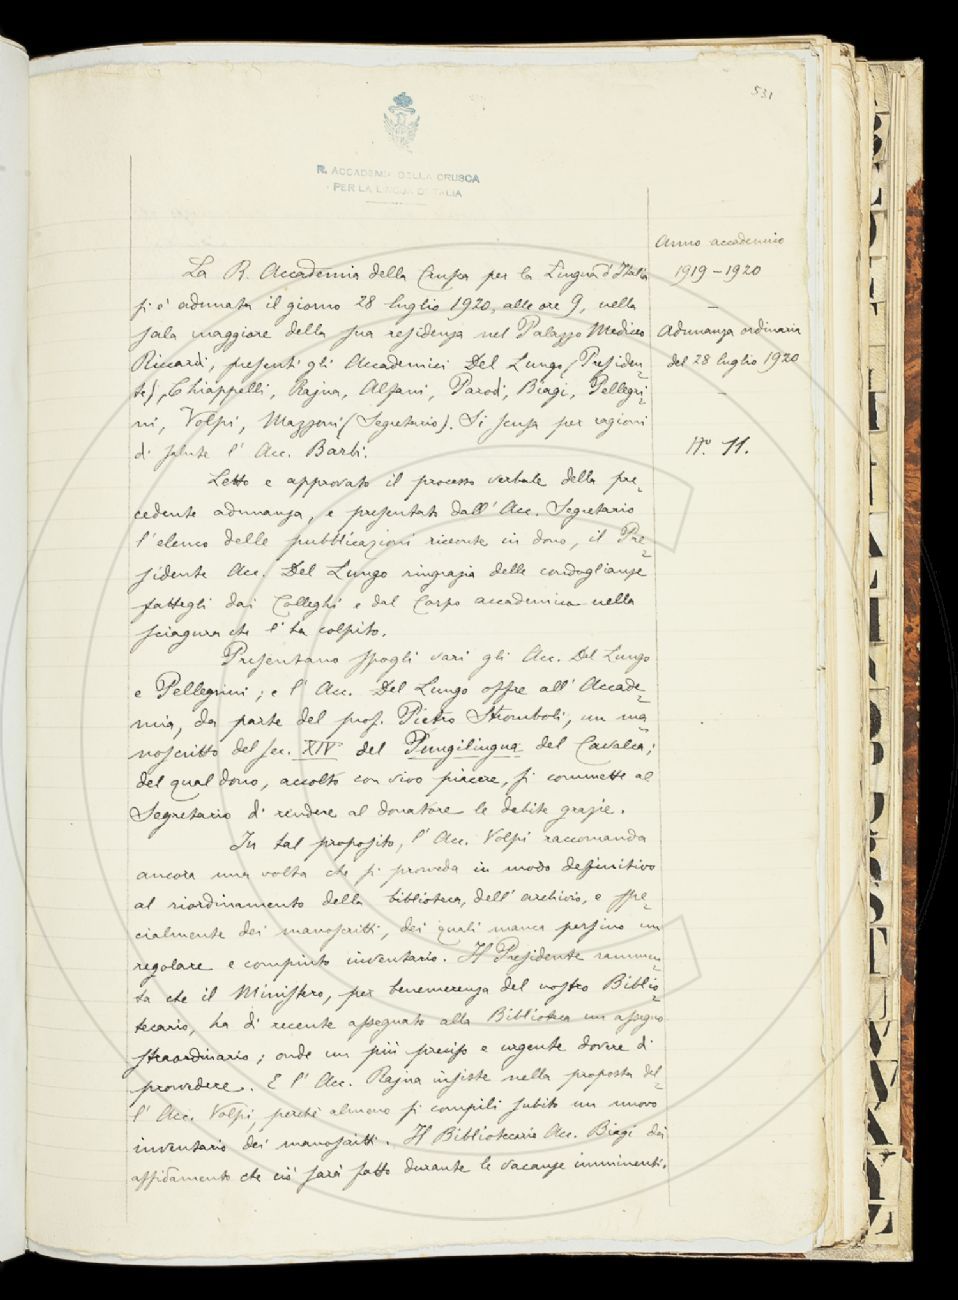 531
R. ACCADEMIA DELLA CRUSCA
PER LA LINGUA D'ITALIA
Anno accademico
1919-1920
—
Adunanza ordinaria
del 28 luglio 1920
—
N.º 11.
La R. Accademia della Crusca per la Lingua d'Italia
si è adunata il giorno 28 luglio 1920, alle ore 9, nella
sala maggiore della sua residenza nel Palazzo Mediceo
Riccardi, presenti gli Accademici Del Lungo (Presiden-
te), Chiappelli, Rajna, Alfani, Parodi, Biagi, Pellegri-
ni, Volpi, Mazzoni (Segretario). Si scusa per ragioni
di salute l'Acc. Barbi.
Letto e approvato il processo verbale della pre-
cedente adunanza, e presentato dall'Acc. Segretario
l'elenco delle pubblicazioni ricevute in dono, il Pre-
sidente Acc. Del Lungo ringrazia delle condoglianze
fattegli dai Colleghi e dal Corpo accademico nella
sciagura che l'ha colpito.
Presentano spogli vari gli Acc. Del Lungo
e Pellegrini; e l'Acc. Del Lungo offre all'Accade-
mia, da parte del prof. Pietro Stromboli, un ma-
noscritto del sec. XIV del Pungilingua del Cavalca;
del qual dono, accolto con vivo piacere, si commette al
Segretario di rendere al donatore le debite grazie.
In tal proposito, l'Acc. Volpi raccomanda
ancora una volta che si provveda in modo definitivo
al riordinamento della biblioteca, dell'archivio, e spe-
cialmente dei manoscritti, dei quali manca persino un
regolare e compiuto inventario. Il Presidente rammen-
ta che il Ministero, per benemerenza del nostro Biblio-
tecario, ha di recente assegnato alla Biblioteca un assegno
straordinario; onde un più preciso e urgente dovere di
provvedere. E l'Acc. Rajna insiste nella proposta del-
l'Acc. Volpi, perché almeno si compili subito un nuovo
inventario dei manoscritti. Il Bibliotecario Acc. Biagi dà
affidamento che ciò sarà fatto durante le vacanze imminenti.